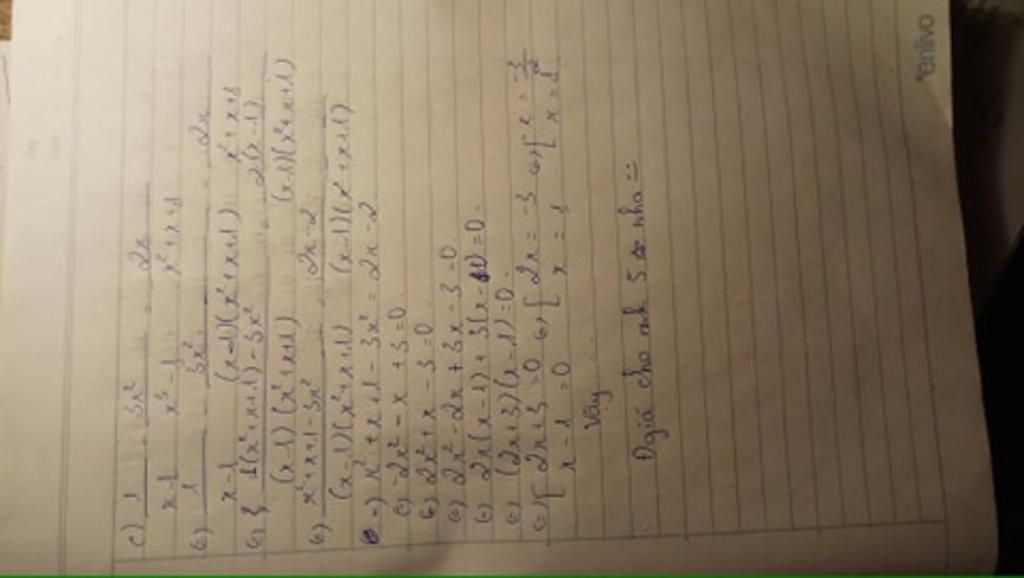 c) 1/(x-1) - 3x²/(x³-1) = 2x/(x²+x+1)
(=) 1/(x-1) - 3x²/((x-1)(x²+x+1)) = 2x/(x²+x+1)
(=) (1(x²+x+1)-3x²)/((x-1)(x²+x+1)) = 2x(x-1)/((x-1)(x²+x+1))
(=) (x²+x+1-3x²)/((x-1)(x²+x+1)) = 2x-2/((x-1)(x²+x+1))
=) x²+x+1-3x² = 2x-2
(=) -2x²-x+3=0
(=) 2x²+x-3=0
(=) 2x²-2x+3x-3=0
(=) 2x(x-1)+3(x-1)=0.
(=) (2x+3)(x-1)=0.
(=) [2x+3=0 (=) [2x=-3 (=) [x=-3/2
x-1=0 x=1 x=1
Vậy ...
Đgiá cho mk 5 nha
enlivo